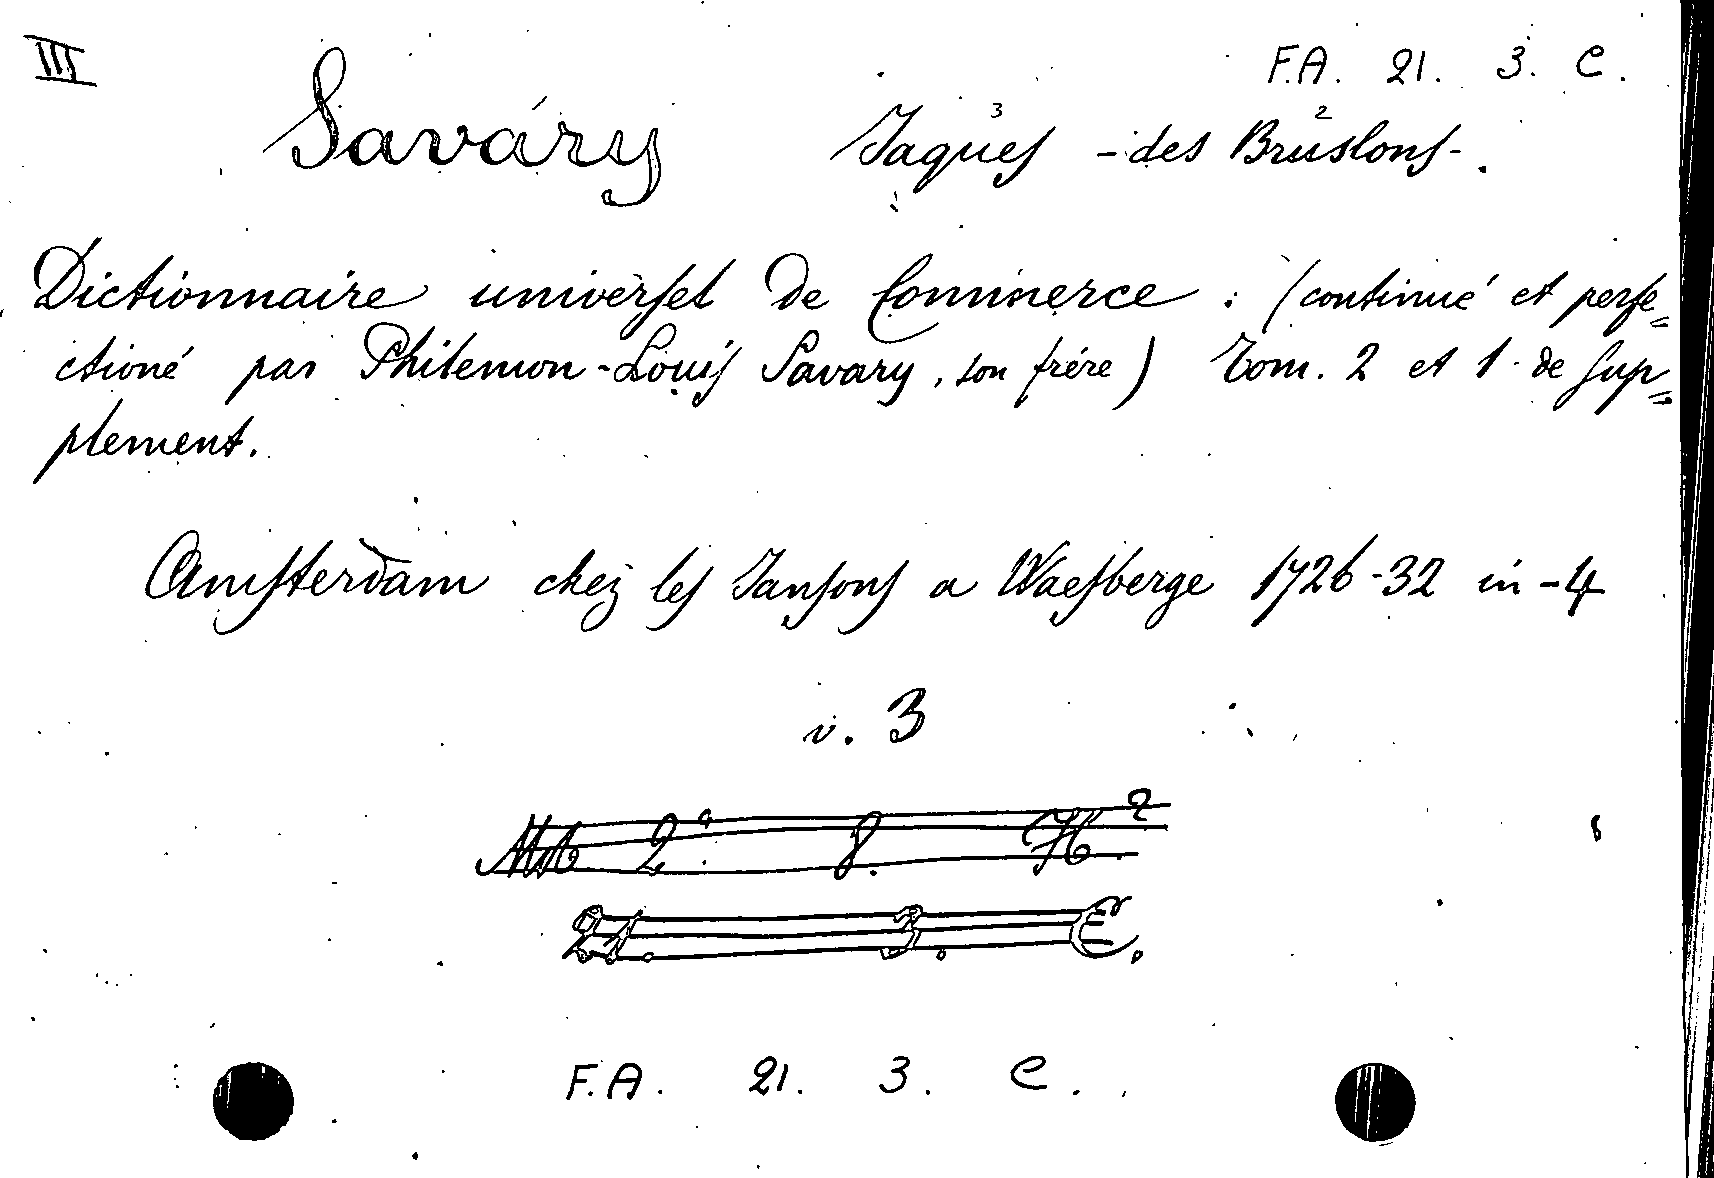 III F.A. 21. 3. C.
Savary Jaques ³ -des Bruslons- ².
Dictionnaire universel de Commerce : (continué et perfe„
ctioné par Philemon-Louis Savary, son frére) Tom. 2 et 1 de Sup„
plement.
Amsterdam chez les Jansons a Waesberge 1726-32 in-4
v. 3
2° 8. H²
21. 3. C.
F.A. 21. 3. C.